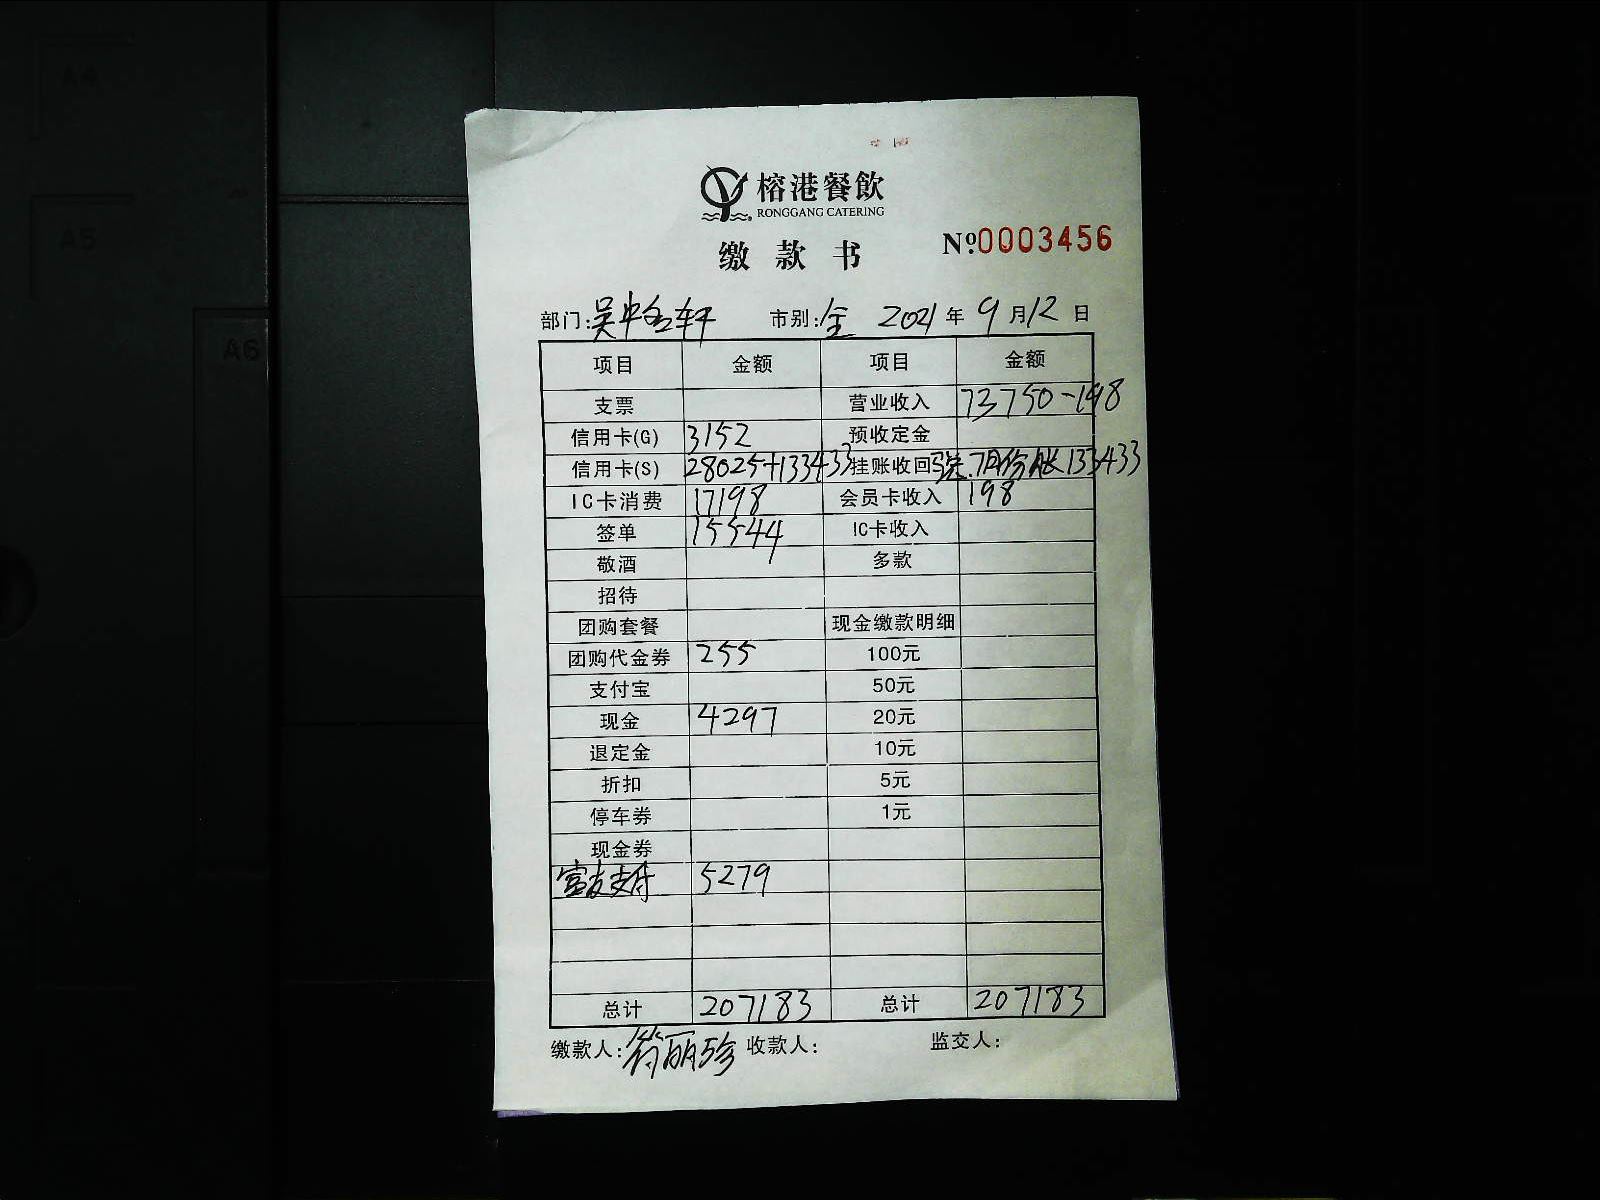 榕港餐飲
RONGGANG CATERING
缴款书
Nº.0003456
部门:吴中金轩 市别:全 2021年9月12日
项目 金额 项目 金额
支票 营业收入 73750-198
信用卡(G) 3152 预收定金
信用卡(S) 28025+133433 挂账收回 7月份账133433
IC卡消费 17198 会员卡收入 198
签单 15544 IC卡收入
敬酒 多款
招待
团购套餐 现金缴款明细
团购代金券 255 100元
支付宝 50元
现金 4297 20元
退定金 10元
折扣 5元
停车券 1元
现金券
富友支付 5279
总计 207183 总计 207183
缴款人:符丽珍 收款人: 监交人:
A4
A5
A6